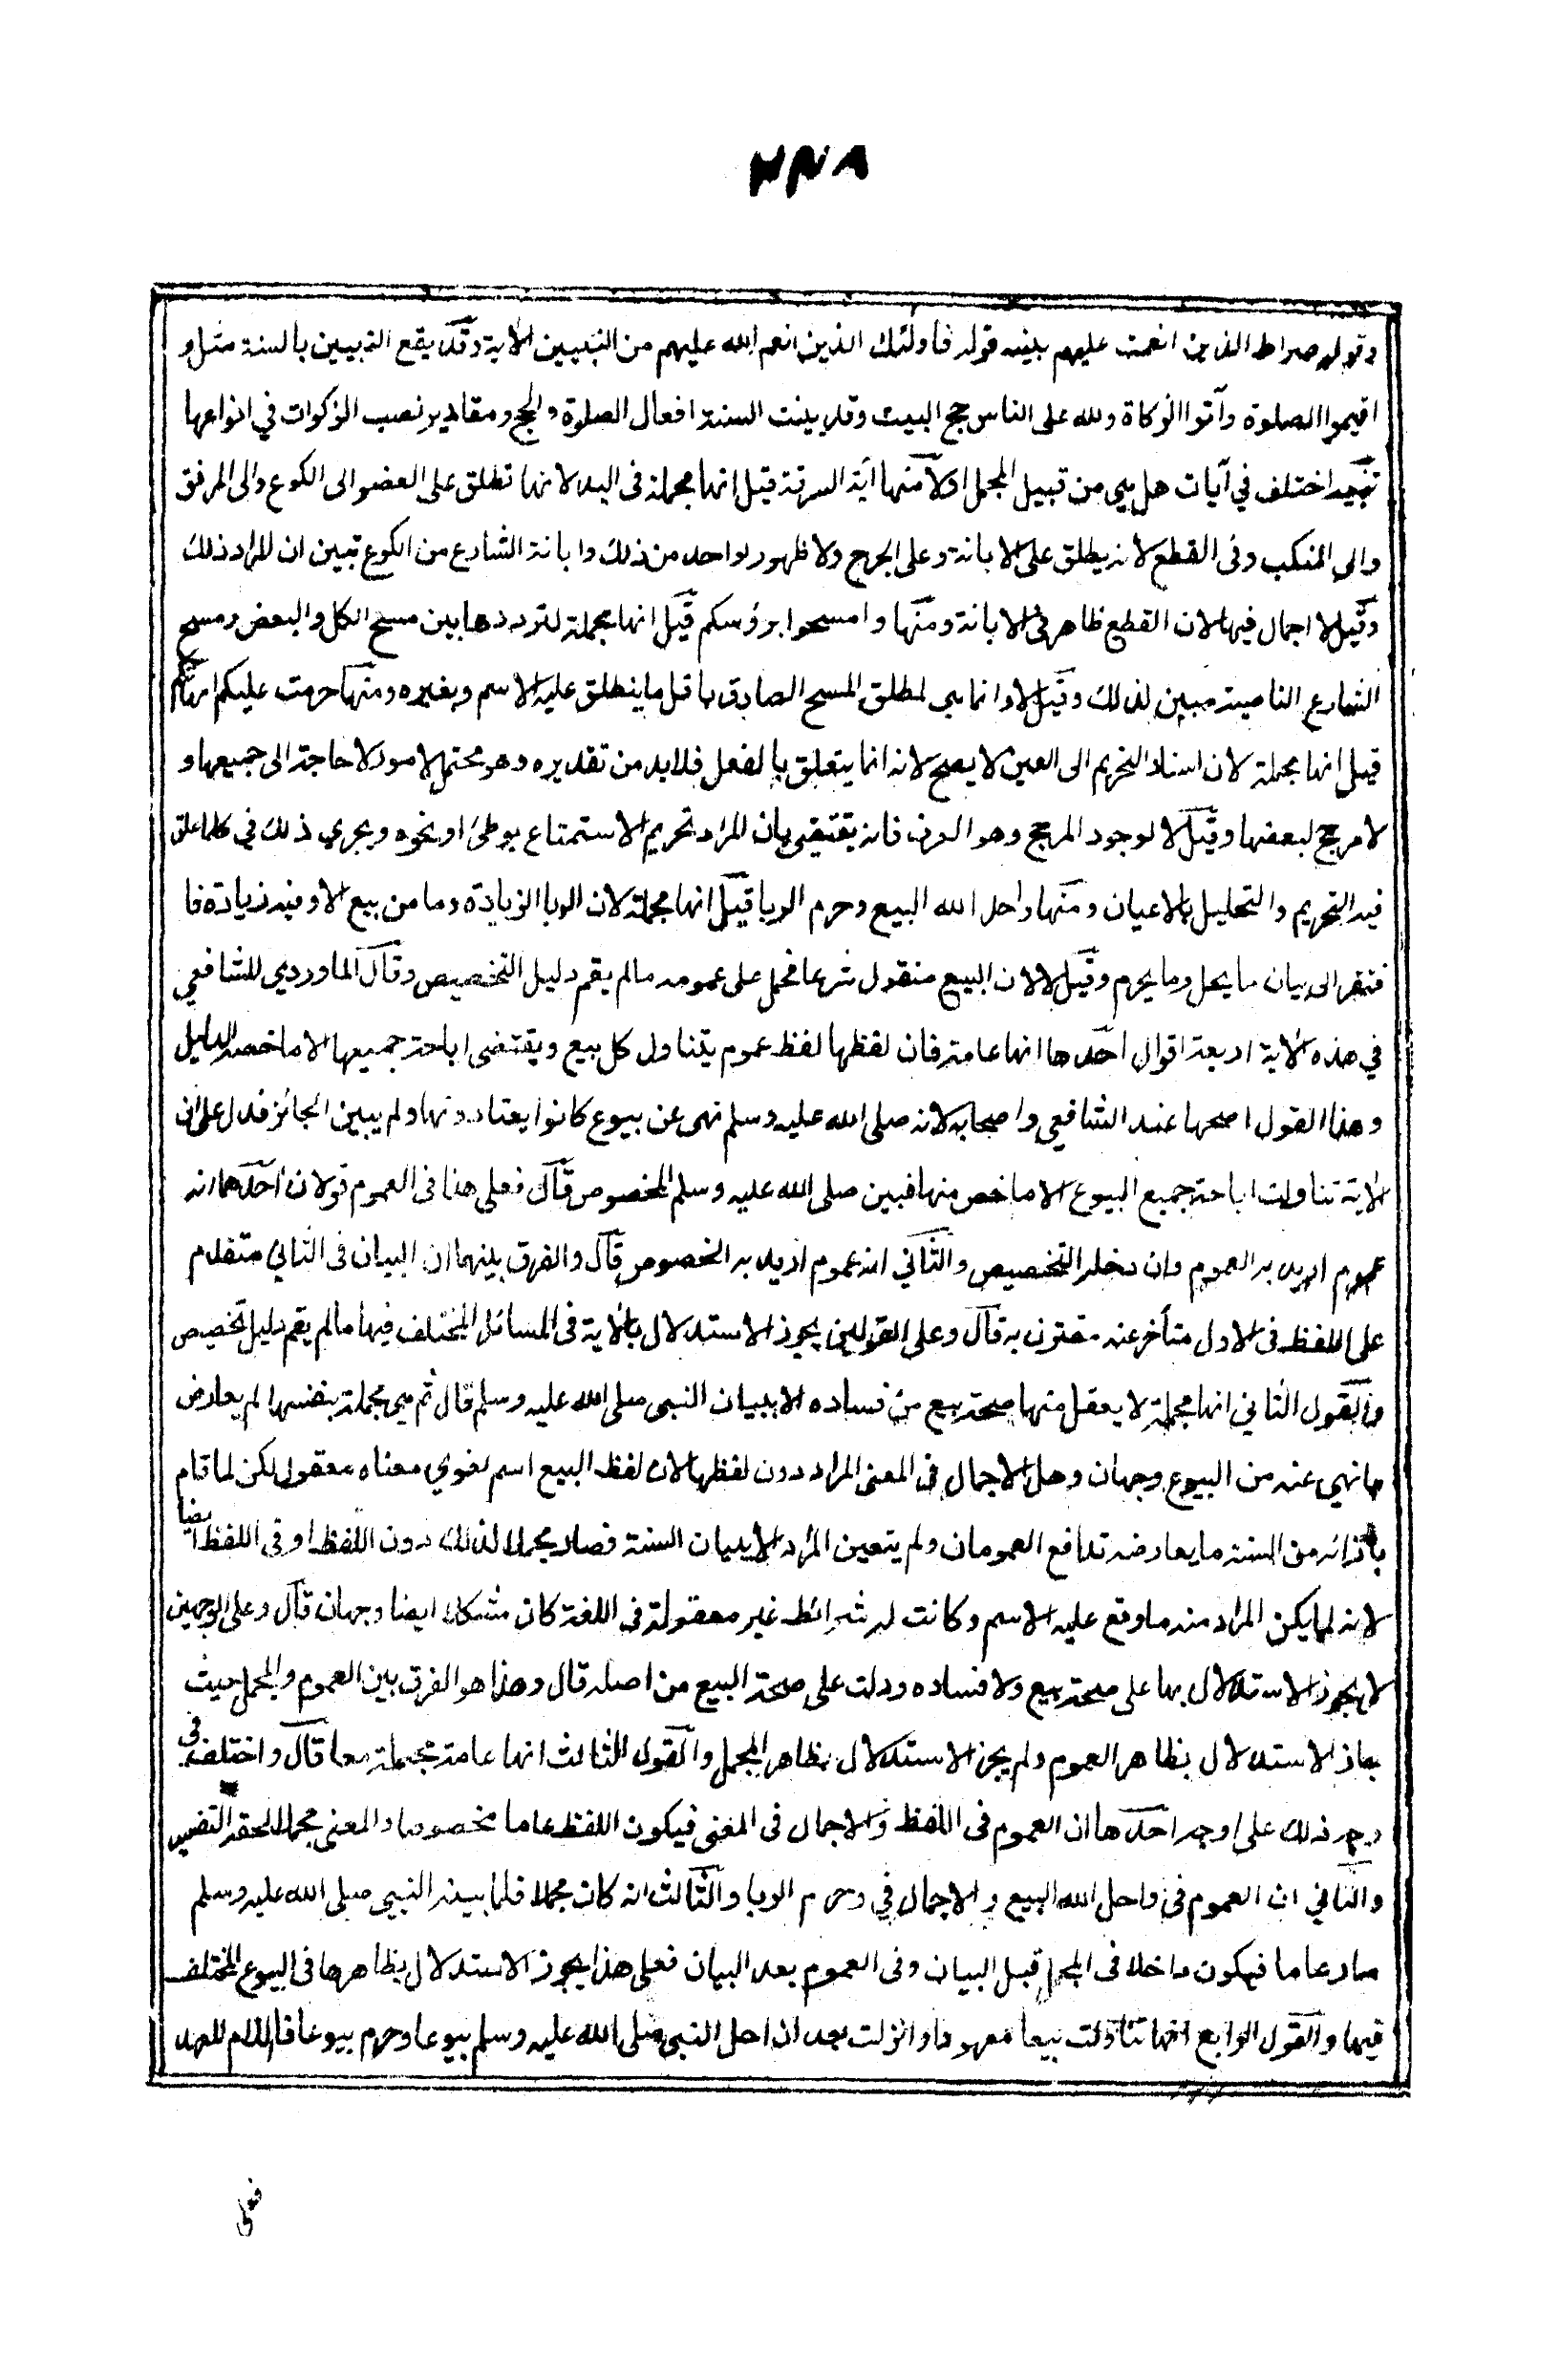 ٣٣٨
وقوله صراط الذين انعمت عليهم بينه قوله فاولئك الذين انعم الله عليهم من النبيين الآية وقد يقع التبيين بالسنة مثل و
اقيموا الصلوة وآتوا الزكاة ولله على الناس حج البيت وقد بينت السنة افعال الصلوة والحج ومقادير نصب الزكوات في انواعها
تنبيه اختلف في آيات هل هي من قبيل المجمل اولا منها آية السرقة قيل انها مجملة فى اليد لانها تطلق على العضو الى الكوع والى المرفق
والى المنكب وفى القطع لانه يطلق على الابانة وعلى الجرح ولا ظهور لواحد من ذلك وابانة الشارع من الكوع تبين ان المراد ذلك
وقيل لا اجمال فيها لان القطع ظاهر فى الابانة ومنها وامسحوا برؤسكم قيل انها مجملة لترددها بين مسح الكل والبعض ومسح
الشارع الناصية مبين لذلك وقيل لا وانما هي لمطلق المسح الصادق باقل ما ينطلق عليه الاسم وبغيره ومنها حرمت عليكم امهاتكم
قيل انها مجملة لان اسناد التحريم الى العين لا يصح لانه انما يتعلق بالفعل فلابد من تقديره وهو محتمل لامور لا حاجة الى جميعها و
لا مرجح لبعضها وقيل لا لوجود المرجح وهو العرف فانه يقتضي بان المراد تحريم الاستمتاع بوطئ او نحوه ويجري ذلك في كلما علق
فيه التحريم والتحليل بالاعيان ومنها واحل الله البيع وحرم الربا قيل انها مجملة لان الربا الزيادة وما من بيع الا وفيه زيادة فا
فتقر الى بيان ما يحل وما يحرم وقيل لا لان البيع منقول شرعا فحمل على عمومه مالم يقم دليل التخصيص وقال الماوردي للشافعي
في هذه الآية اربعة اقوال احدها انها عامة فان لفظها لفظ عموم يتناول كل بيع ويقتضى اباحة جميعها الا ما خصه الدليل
وهذا القول اصحها عند الشافعي واصحابه لانه صلى الله عليه وسلم نهى عن بيوع كانوا يعتادونها ولم يبين الجائز فدل على ان
الآية تناولت اباحة جميع البيوع الا ما خص منها فبين صلى الله عليه وسلم المخصوص قال فعلى هذا فى العموم قولان احدهما انه
عموم اريد به العموم وان دخله التخصيص والثاني انه عموم اريد به الخصوص قال والفرق بينهما ان البيان فى الثاني متقدم
على اللفظ فى الاول متأخر عنه مقترن به قال وعلى القولين يجوز الاستدلال بالآية فى المسائل المختلف فيها مالم يقم دليل تخصيص
والقول الثاني انها مجملة لا يعقل منها صحة بيع من فساده الا ببيان النبى صلى الله عليه وسلم قال ثم هى مجملة بنفسها ام بعارض
ما نهي عنه من البيوع وجهان وهل الاجمال فى المعنى المراد دون لفظها لان لفظ البيع اسم لغوي معناه معقول لكن لما قام
بازائه من السنة ما يعارضه تدافع العمومان ولم يتعين المراد الا ببيان السنة فصار مجملا لذلك دون اللفظ او فى اللفظ ايضا
لانه لما يكن المراد منه ما وقع عليه الاسم وكانت له شرائط غير معقولة فى اللغة كان مشكلا ايضا وجهان قال وعلى الوجهين
لا يجوز الاستدلال بها على صحة بيع ولا فساده ودلت على صحة البيع من اصله قال وهذا هو الفرق بين العموم والمجمل حيث
جاز الاستدلال بظاهر العموم ولم يجز الاستدلال بظاهر المجمل والقول الثالث انها عامة مجملة معا قال واختلف فى
وجه ذلك على اوجه احدها ان العموم فى اللفظ والاجمال فى المعنى فيكون اللفظ عاما مخصوصا والمعنى مجملا لحقه التفسير
والثاني ان العموم فى واحل الله البيع والاجمال في وحرم الربا والثالث انه كان مجملا فلما بينه النبي صلى الله عليه وسلم
صار عاما فيكون داخلا فى المجمل قبل البيان وفى العموم بعد البيان فعلى هذا يجوز الاستدلال بظاهرها فى البيوع المختلف
فيها والقول الرابع انها تناولت بيعا معهودا وانزلت بعد ان احل النبى صلى الله عليه وسلم بيوعا وحرم بيوعا فاللام للعهد
فعلى